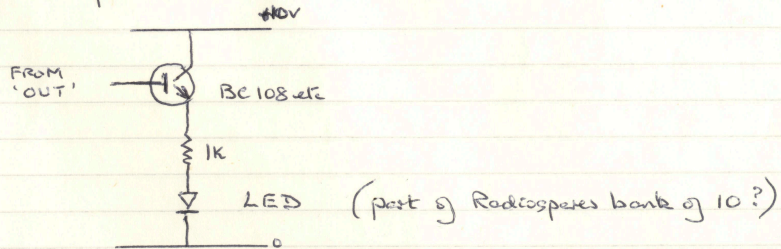 +10V
FROM
'OUT'
BC108 etc
1K
LED (part of Radiospares bank of 10?)
0